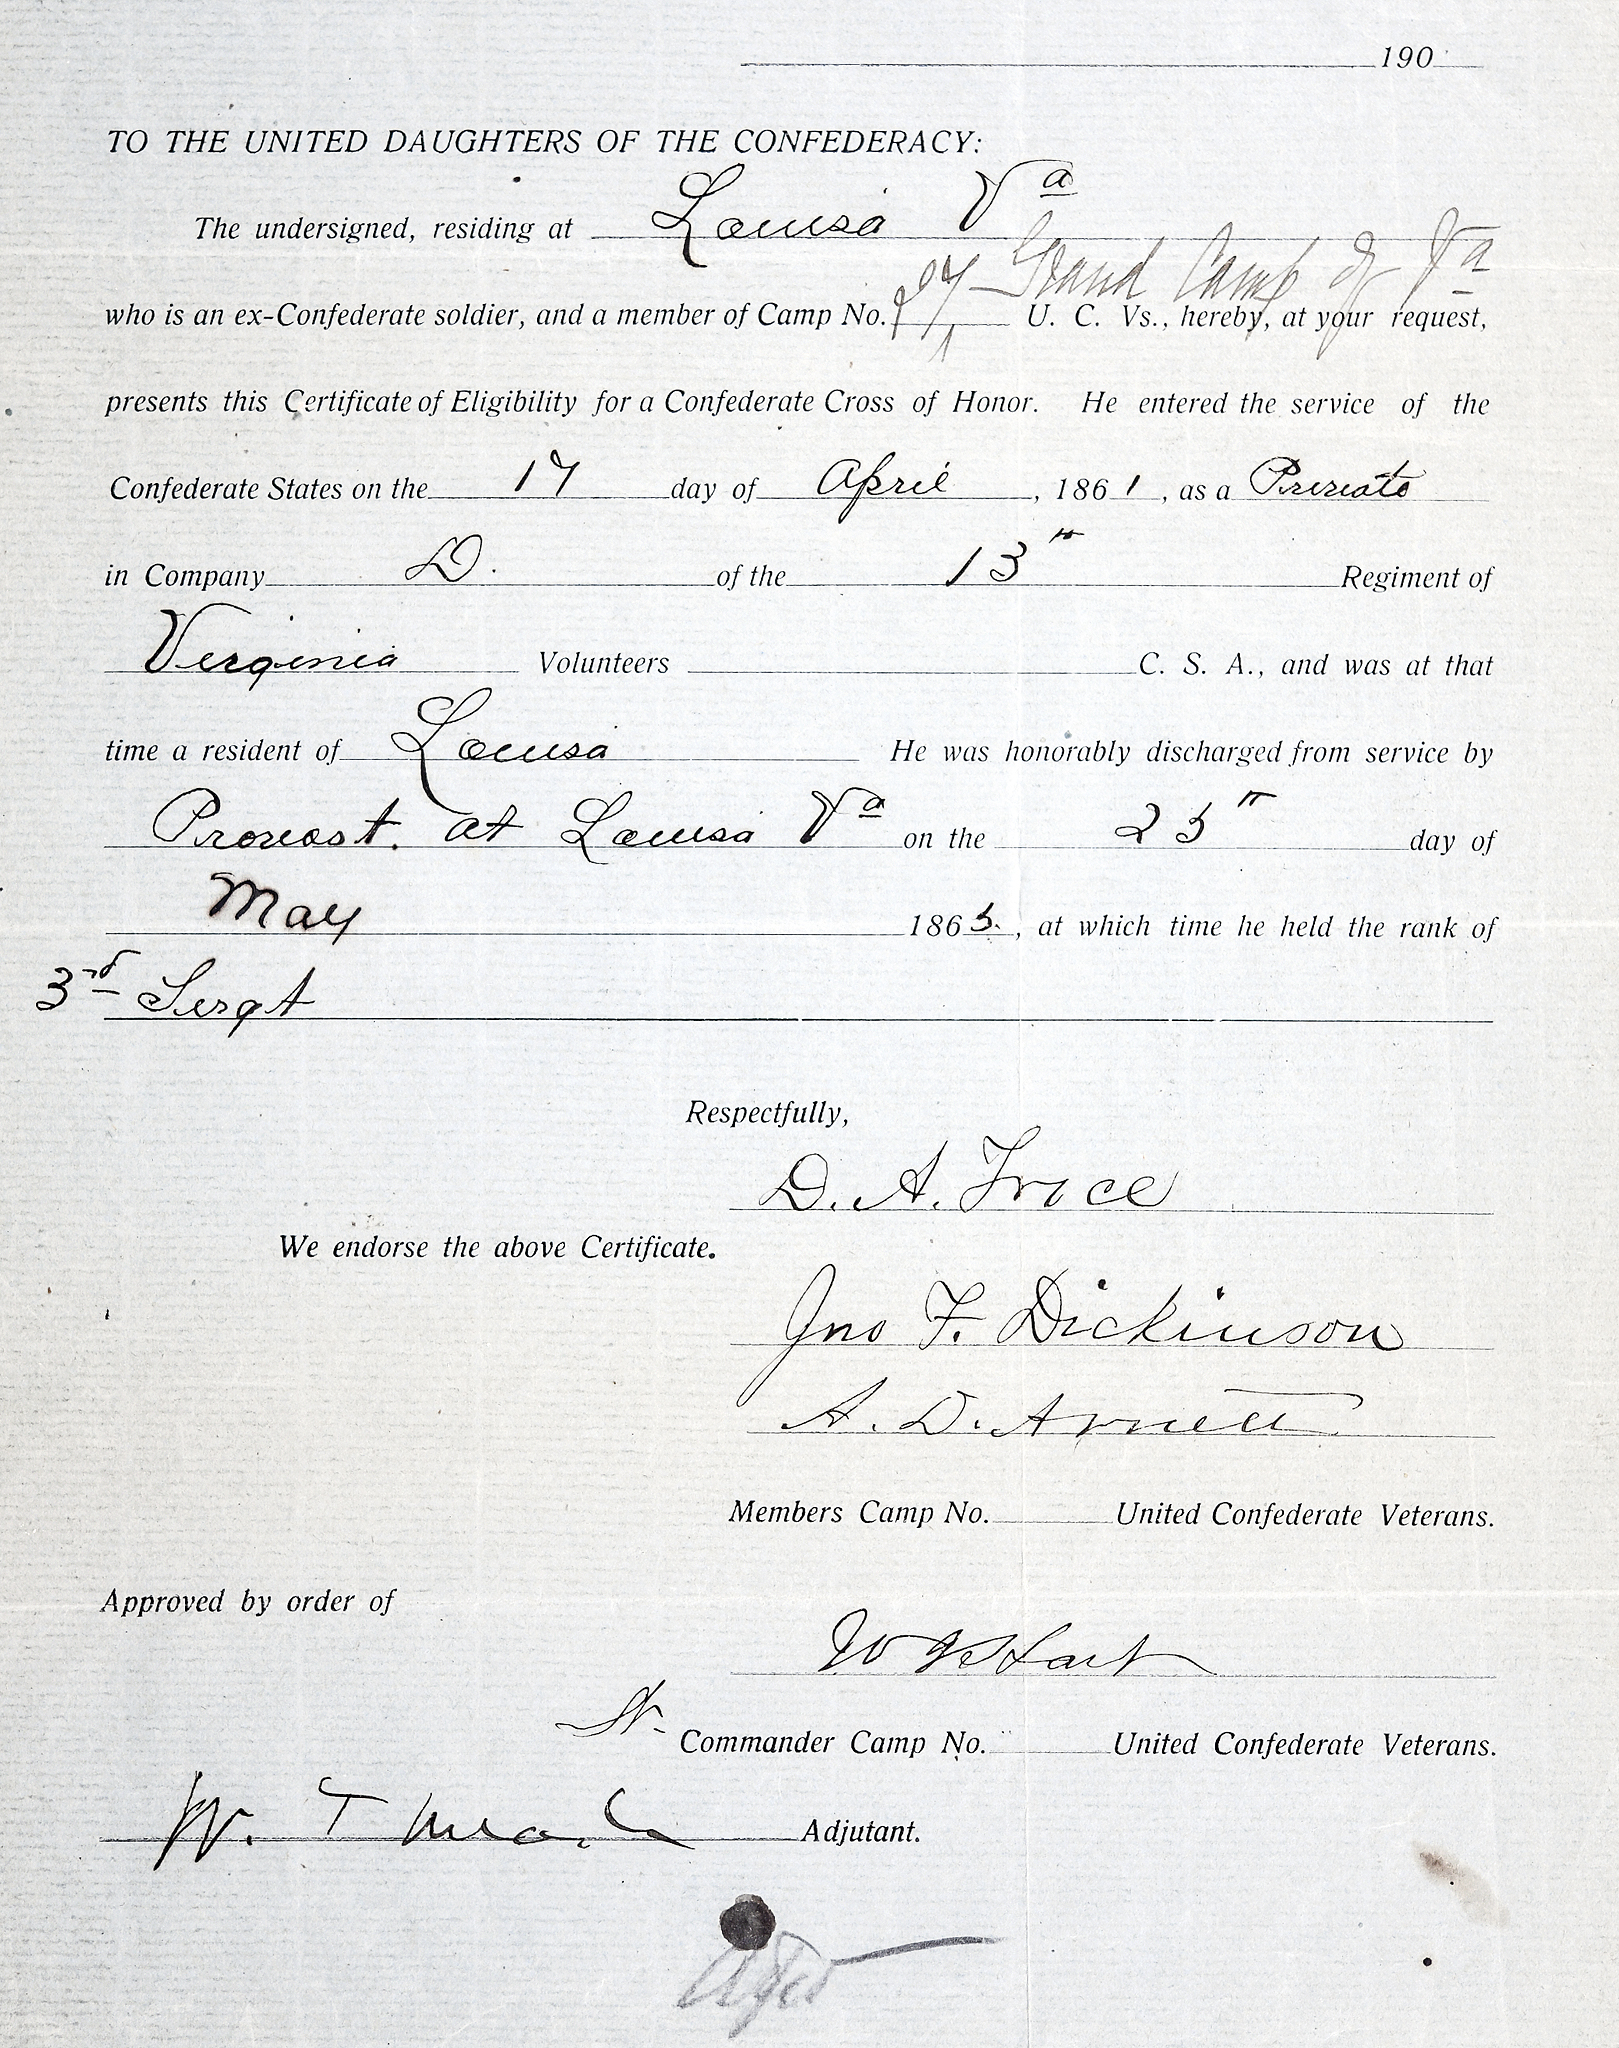 190
TO THE UNITED DAUGHTERS OF THE CONFEDERACY:
The undersigned, residing at Louisa Va
Grand Camp of Va
who is an ex-Confederate soldier, and a member of Camp No. U. C. Vs., hereby, at your request,
presents this Certificate of Eligibility for a Confederate Cross of Honor. He entered the service of the
Confederate States on the 17 day of April, 1861, as a Private
in Company D. of the 13th Regiment of
Virginia Volunteers C. S. A., and was at that
time a resident of Louisa He was honorably discharged from service by
Provost. at Louisa Va on the 25th day of
May 1865., at which time he held the rank of
3rd Sergt
Respectfully,
D. A. Trice
We endorse the above Certificate.
Jno F. Dickinson
A. D. Arnett
Members Camp No. United Confederate Veterans.
Approved by order of
Hart
Commander Camp No. United Confederate Veterans.
W. T Adjutant.